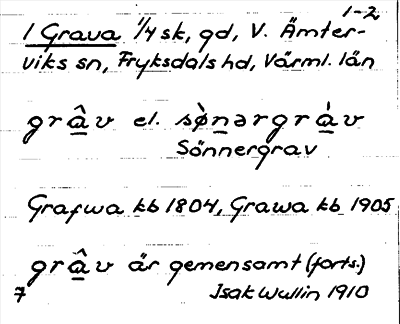 1-2
1 Grava 1/4 sk, gd, V. Ämter-
viks sn, Fryksdals hd, Värml. län
grâ̱v el. sø̀ṉərgrà̱v
Sönnergrav
Grafwa kb 1804, Grawa kb 1905
grâ̱v är gemensamt (forts.)
7 Isak Wullin 1910